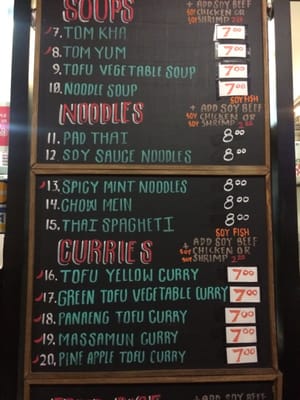 SOUPS
+ ADD SOY BEEF
SOY CHICKEN OR
SOY SHRIMP 2.00
7. TOM KHA 7.00
8. TOM YUM 7.00
9. TOFU VEGETABLE SOUP 7.00
10. NOODLE SOUP 7.00
NOODLES
SOY FISH
+ ADD SOY BEEF
SOY CHICKEN OR
SOY SHRIMP 2.00
11. PAD THAI 8.00
12. SOY SAUCE NOODLES 8.00
13. SPICY MINT NOODLES 8.00
14. CHOW MEIN 8.00
15. THAI SPAGHETI 8.00
CURRIES
SOY FISH
+ ADD SOY BEEF
SOY CHICKEN OR
SOY SHRIMP 2.00
16. TOFU YELLOW CURRY 7.00
17. GREEN TOFU VEGETABLE CURRY 7.00
18. PANAENG TOFU CURRY 7.00
19. MASSAMUN CURRY 7.00
20. PINE APPLE TOFU CURRY 7.00
+ ADD SOY BEEF